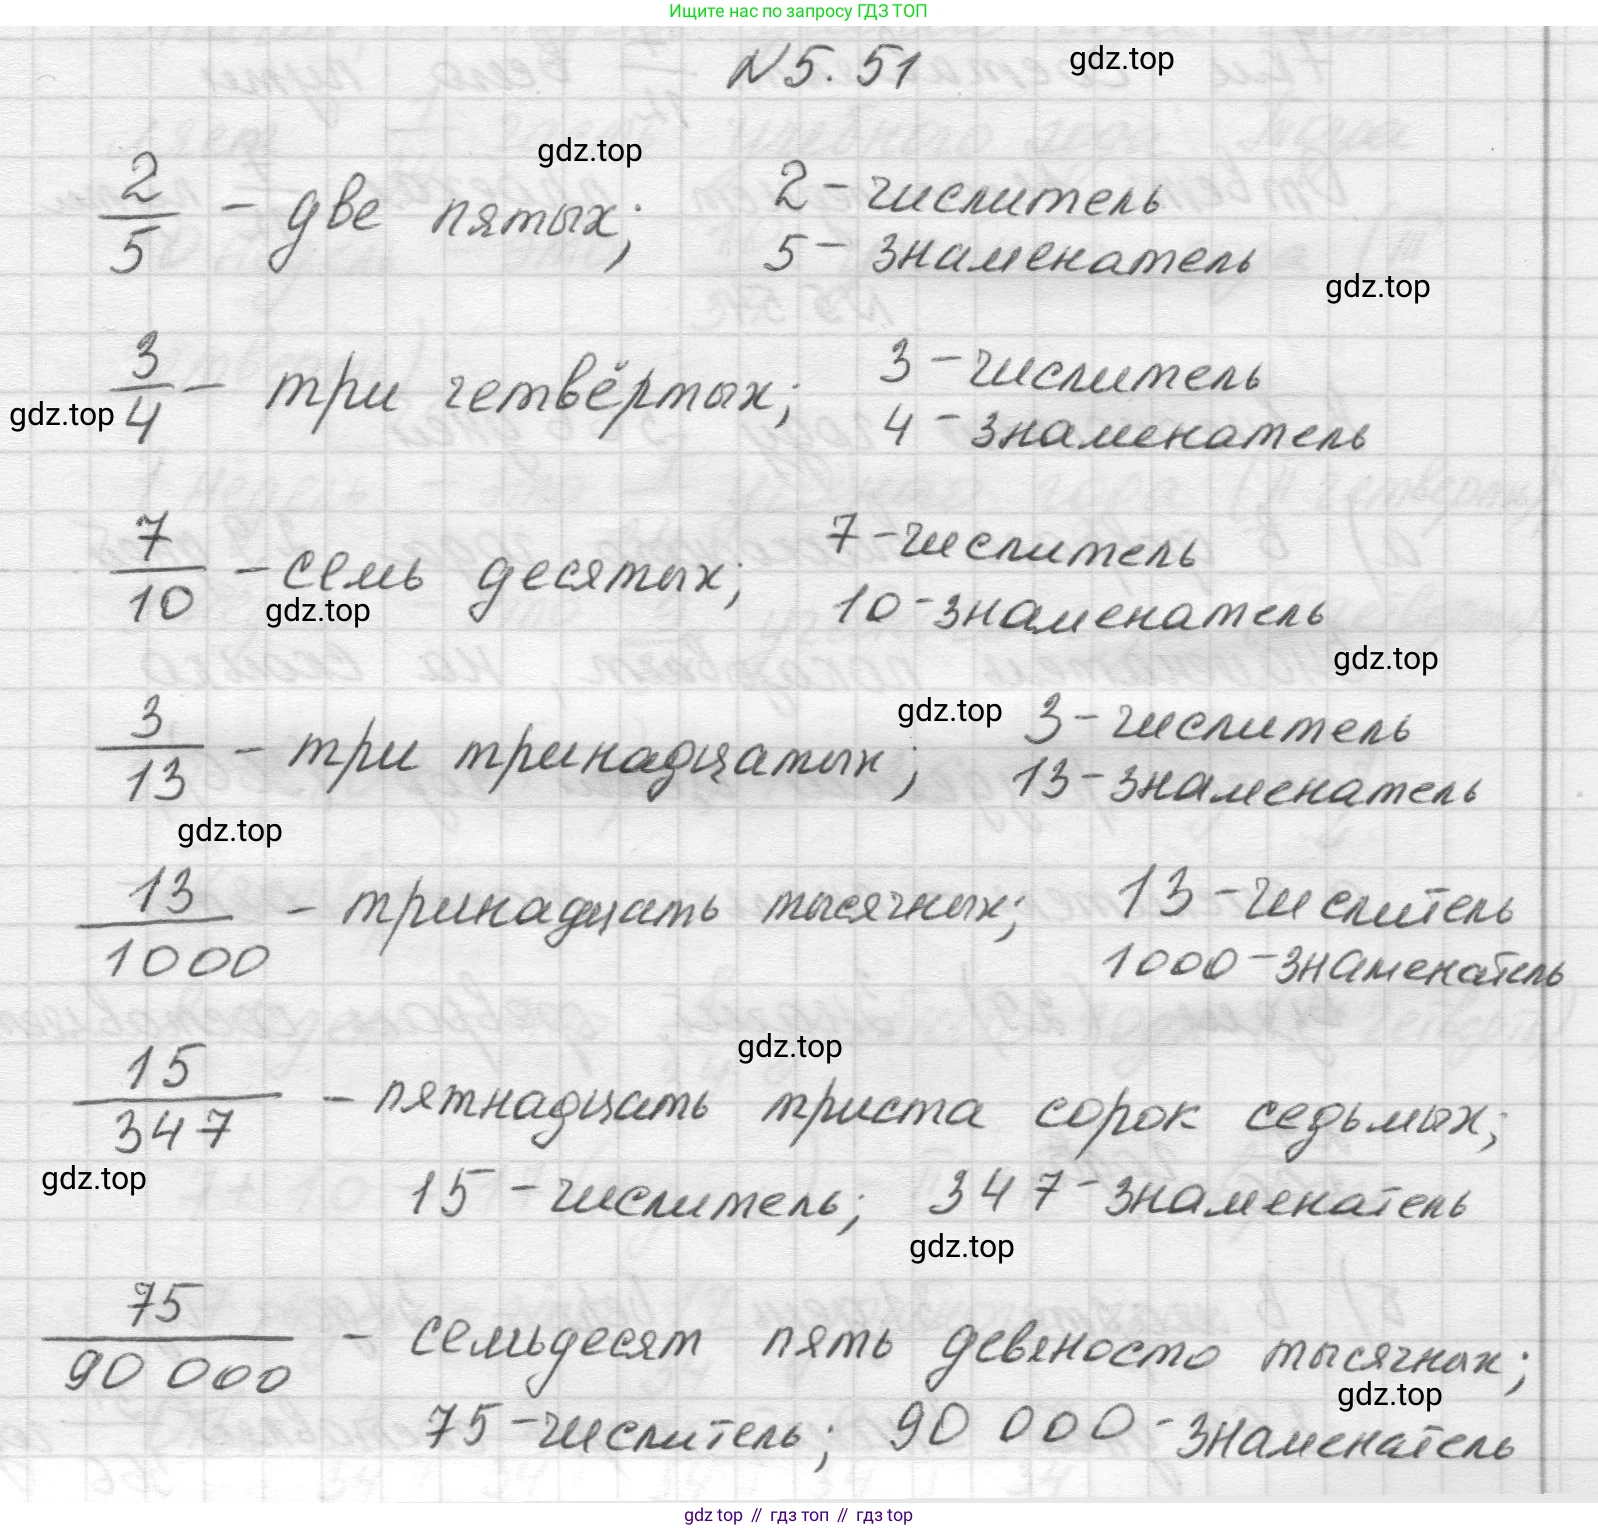 Ищите нас по запросу ГДЗ ТОП
N 5. 51 gdz.top
gdz.top
2/5 - две пятых; 2 - числитель
5 - знаменатель
gdz.top
3/4 - три четвёртых; 3 - числитель
gdz.top 4 - знаменатель
7/10 - семь десятых; 7 - числитель
gdz.top 10 - знаменатель
gdz.top
gdz.top
3/13 - три тринадцатых; 3 - числитель
13 - знаменатель
gdz.top
13/1000 - тринадцать тысячных; 13 - числитель
1000 - знаменатель
gdz.top
15/347 - пятнадцать триста сорок седьмых;
gdz.top
15 - числитель; 347 - знаменатель
gdz.top
75/90 000 - семьдесят пять девяносто тысячных;
gdz.top
75 - числитель; 90 000 - знаменатель
gdz top // гдз топ // гдз top